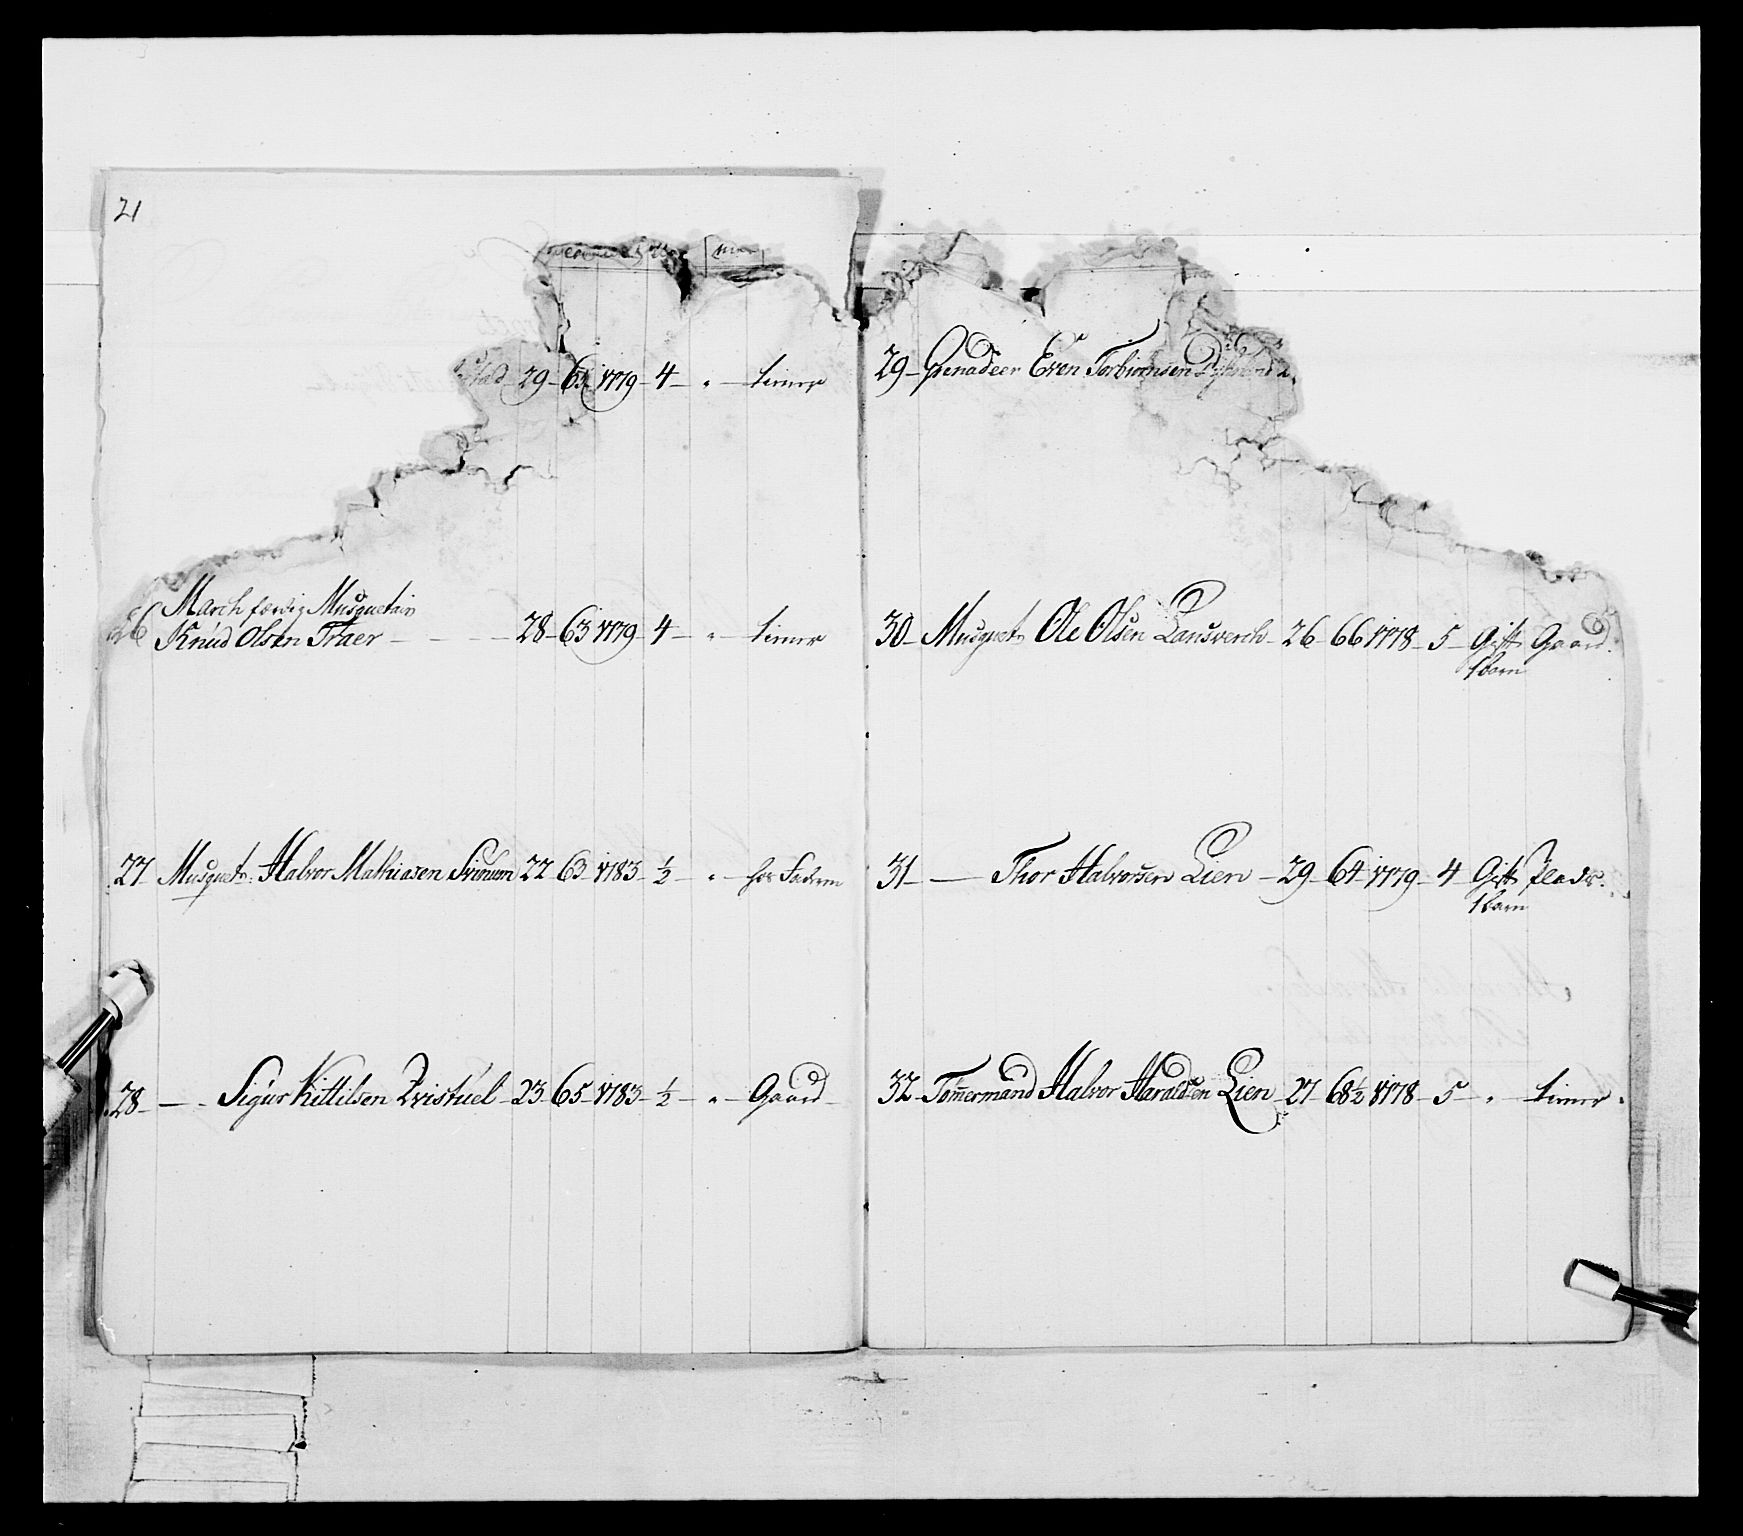 21
stad 29 - 63 - 1779 - 4 - " - tienner
26 March færdig Musquetair
Knud Olsen Traer - - - 28 - 63 - 1779 - 4 - " - tienner
27 Musquet: Halvor Mathiasen 22 - 63 - 1783 - ½ - " - hos Faderen
28 - — - Sigur Kittilsen Qvistuel - 23 - 65 - 1783 - ½ - " - Gaard
29 - Grenadeer Even Torbiørnsen
30 - Musquet: Ole Olsen Landsverch - 26 - 66 - 1778 - 5 - Gift Gaard.
1 barn
31 - — Thor Halvorsen Lien - 29 - 64 - 1779 - 4 Gift Plads.
1 barn
32 - Tømmermand Halvor Haraldsen Lien - 27 - 68½ - 1778 - 5 - " - tienner.